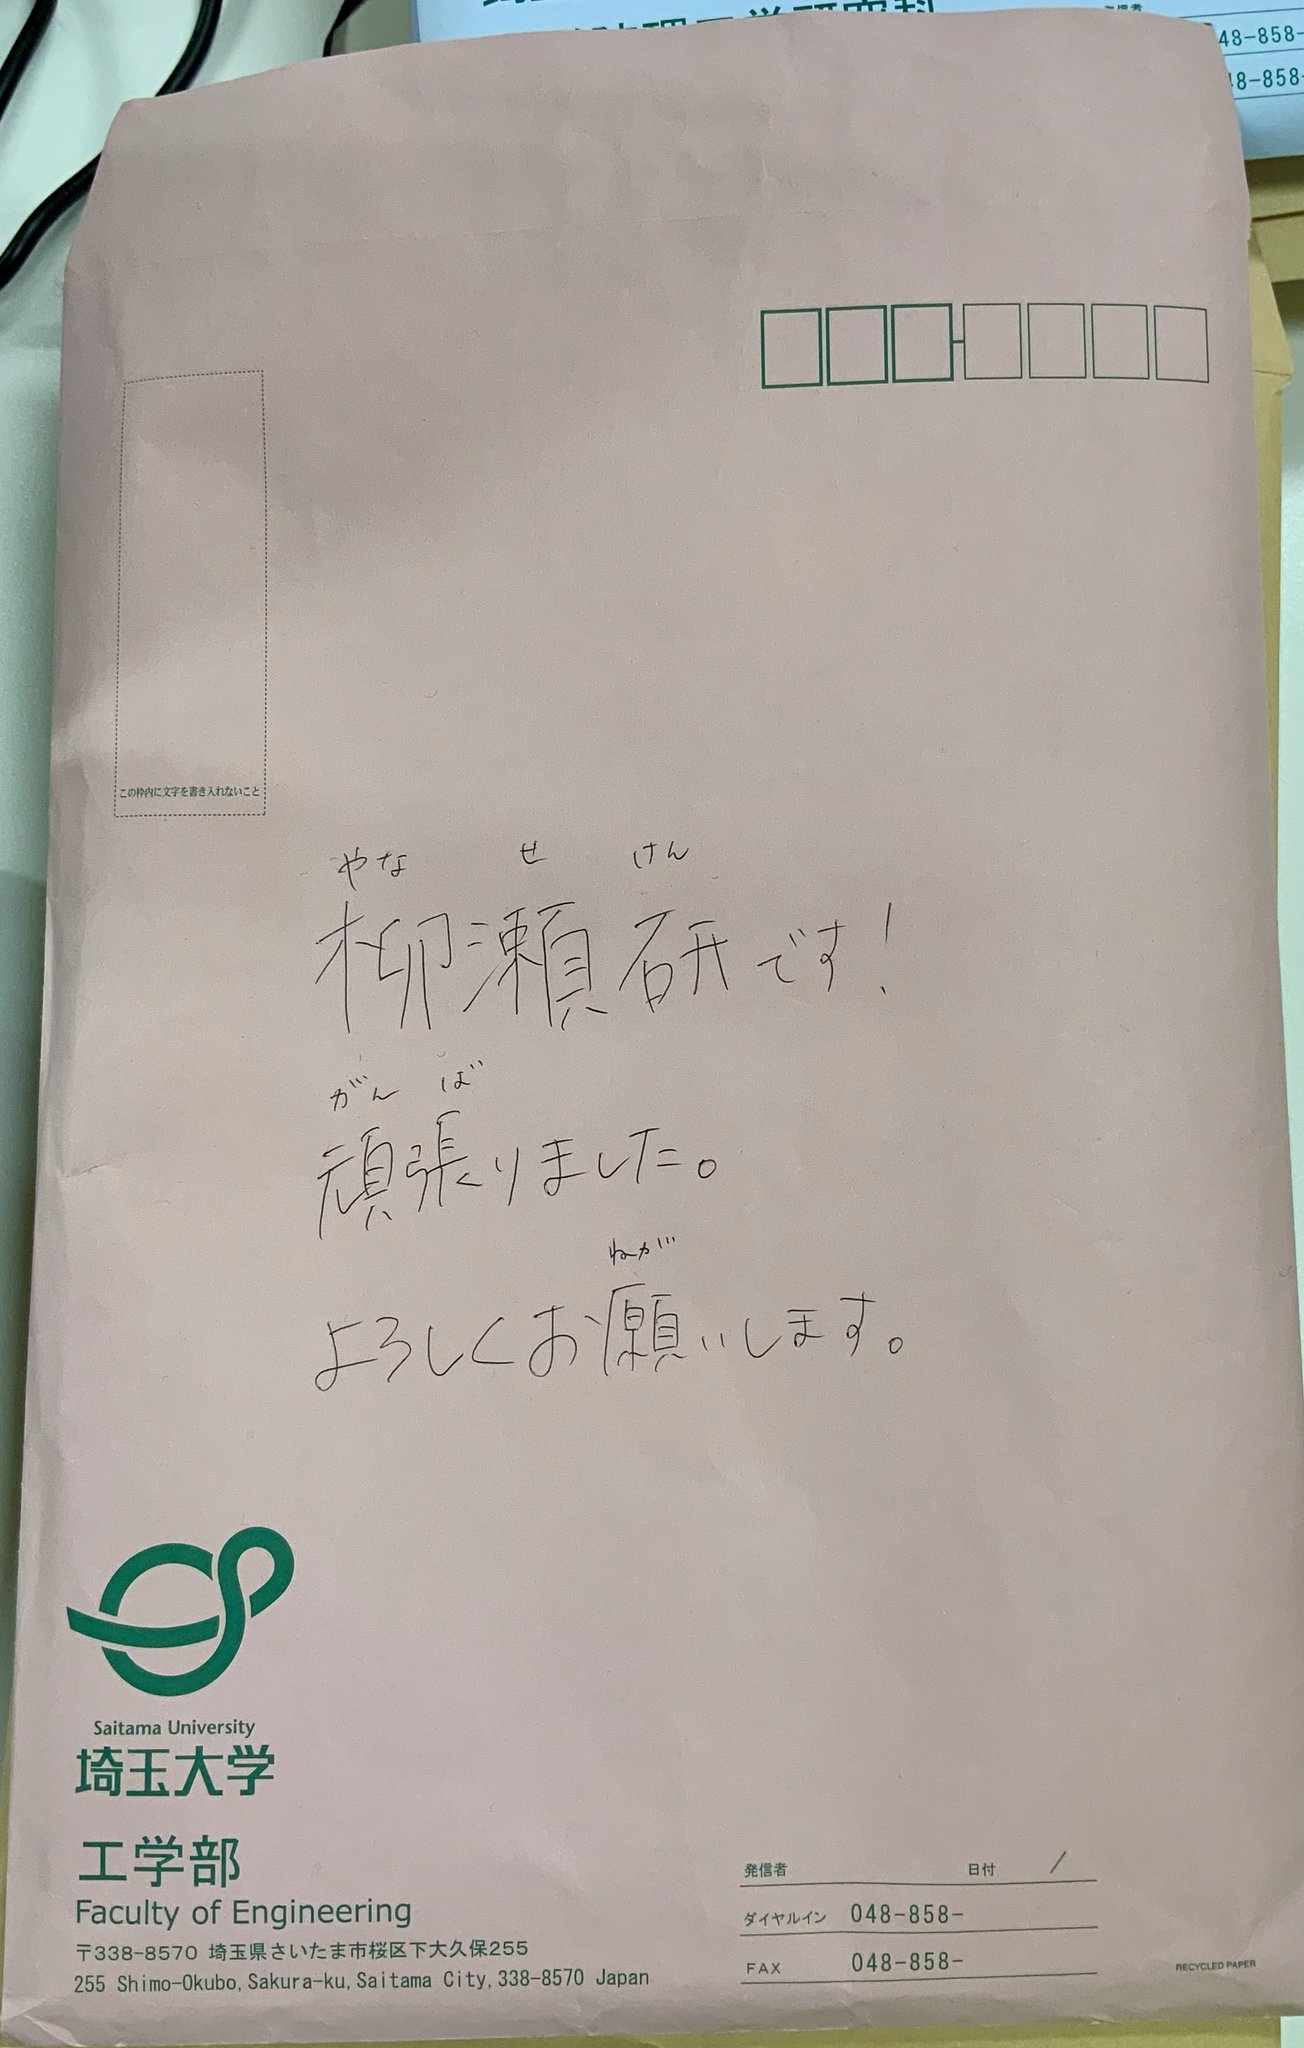 048-858-
048-858-
この枠内に文字を書き入れないこと
やなせけん
柳瀬研です!
がんば
頑張りました。
ねが
よろしくお願いします。
Saitama University
埼玉大学
工学部
Faculty of Engineering
〒338-8570 埼玉県さいたま市桜区下大久保255
255 Shimo-Okubo, Sakura-ku, Saitama City, 338-8570 Japan
発信者 日付 /
ダイヤルイン 048-858-
FAX 048-858-
RECYCLED PAPER